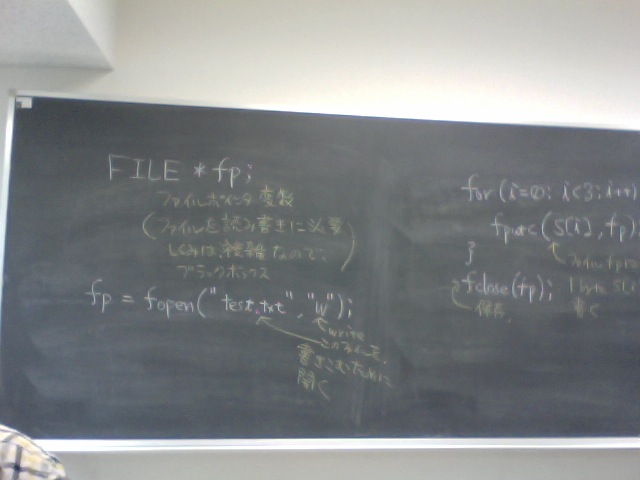 FILE *fp;
ファイルポインタ変数
(ファイルを読み書きに必要
しくみは、複雑なので、
ブラックボックス)
fp = fopen("test.txt", "w");
write
このファイルを、
書きこむために
開く
for (i=0; i<3; i++)
fputc(s[i], fp);
}
fclose(fp);
保存
書く